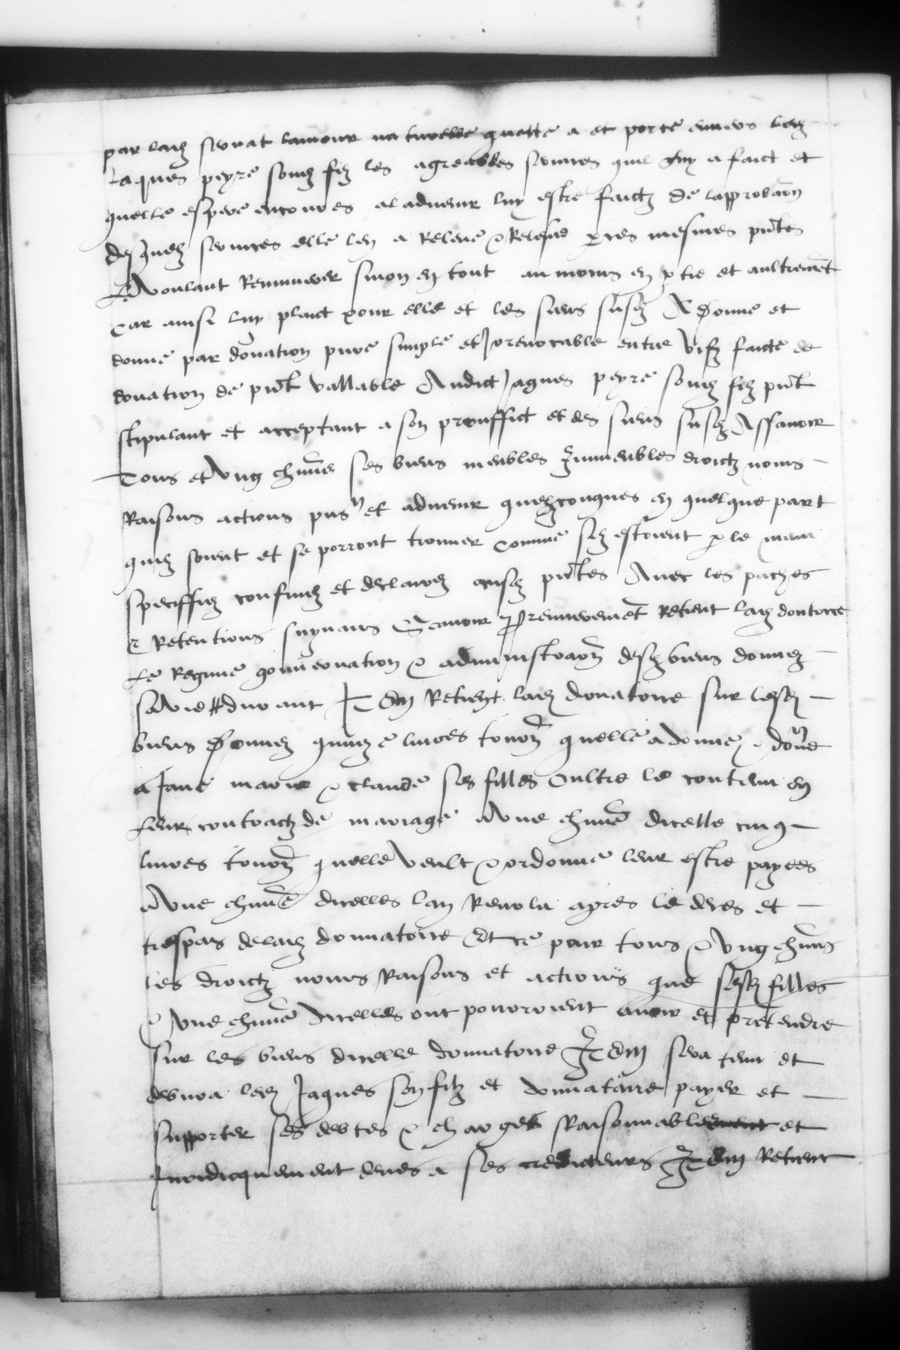 par lad suivat lamour naturelle quelle a et porte envers led
Jaques peyre sond filz les agreables services quil luy a faict et
quelle espere encoures et advenir luy estre faictz de lapprobaon
desquelz services elle len a Releve & Releve p ces mesmes pntes
le voulant Remunerer sinon en tout au moings en ptie et aultrement
Car ainsi luy plaict pour elle et les siens susd A donne et
donne par donation pure simple et Jrevocable entre vifz faicte de
donation de pnt vallable Audict Jaques peyre sond filz pnt
stipulant et acceptant a son prouffict et des siens susd Assavoir
Tous et Ung chune ses biens meubles Jmmeubles droictz noms
Raisons actions pns et advenir quelzconques en quelque part
quilz soient et se porront trouver comme silz estoient p le menu
speciffiez confinez et declairez ausd pntes Avec les paches
& Retentions suyvans Scavoir Premierement Retient lad donatoire
Le Regime gouvernation & administraon desd biens donnez
sa vie durant Item Retient lad donatoire sur lesd
biens donnez quinze livres tourn quelle a donne & donne
a Jane marie & claude ses filles Oultre le contenu en
leurs contractz de mariage a Une chune dicelle cinq
livres tourn quelle veult & ordonne leur estre payees
a Une chune dicelles lan Revolu apres le deces et
trespas de lad donnatoire Et ce pour tous & Ung chuns
les droictz noms Raisons et actions que sesd filles
& Une chune dicelles ont pourroient avoir et pretendre
sur les biens dicelle donnatoire Item sera tenu et
debvra led Jaques son filz et donnataire payer et
supporter ses debtes & charges Raisonnablement et
Juridicquement deues a ses crediteurs Item Retient